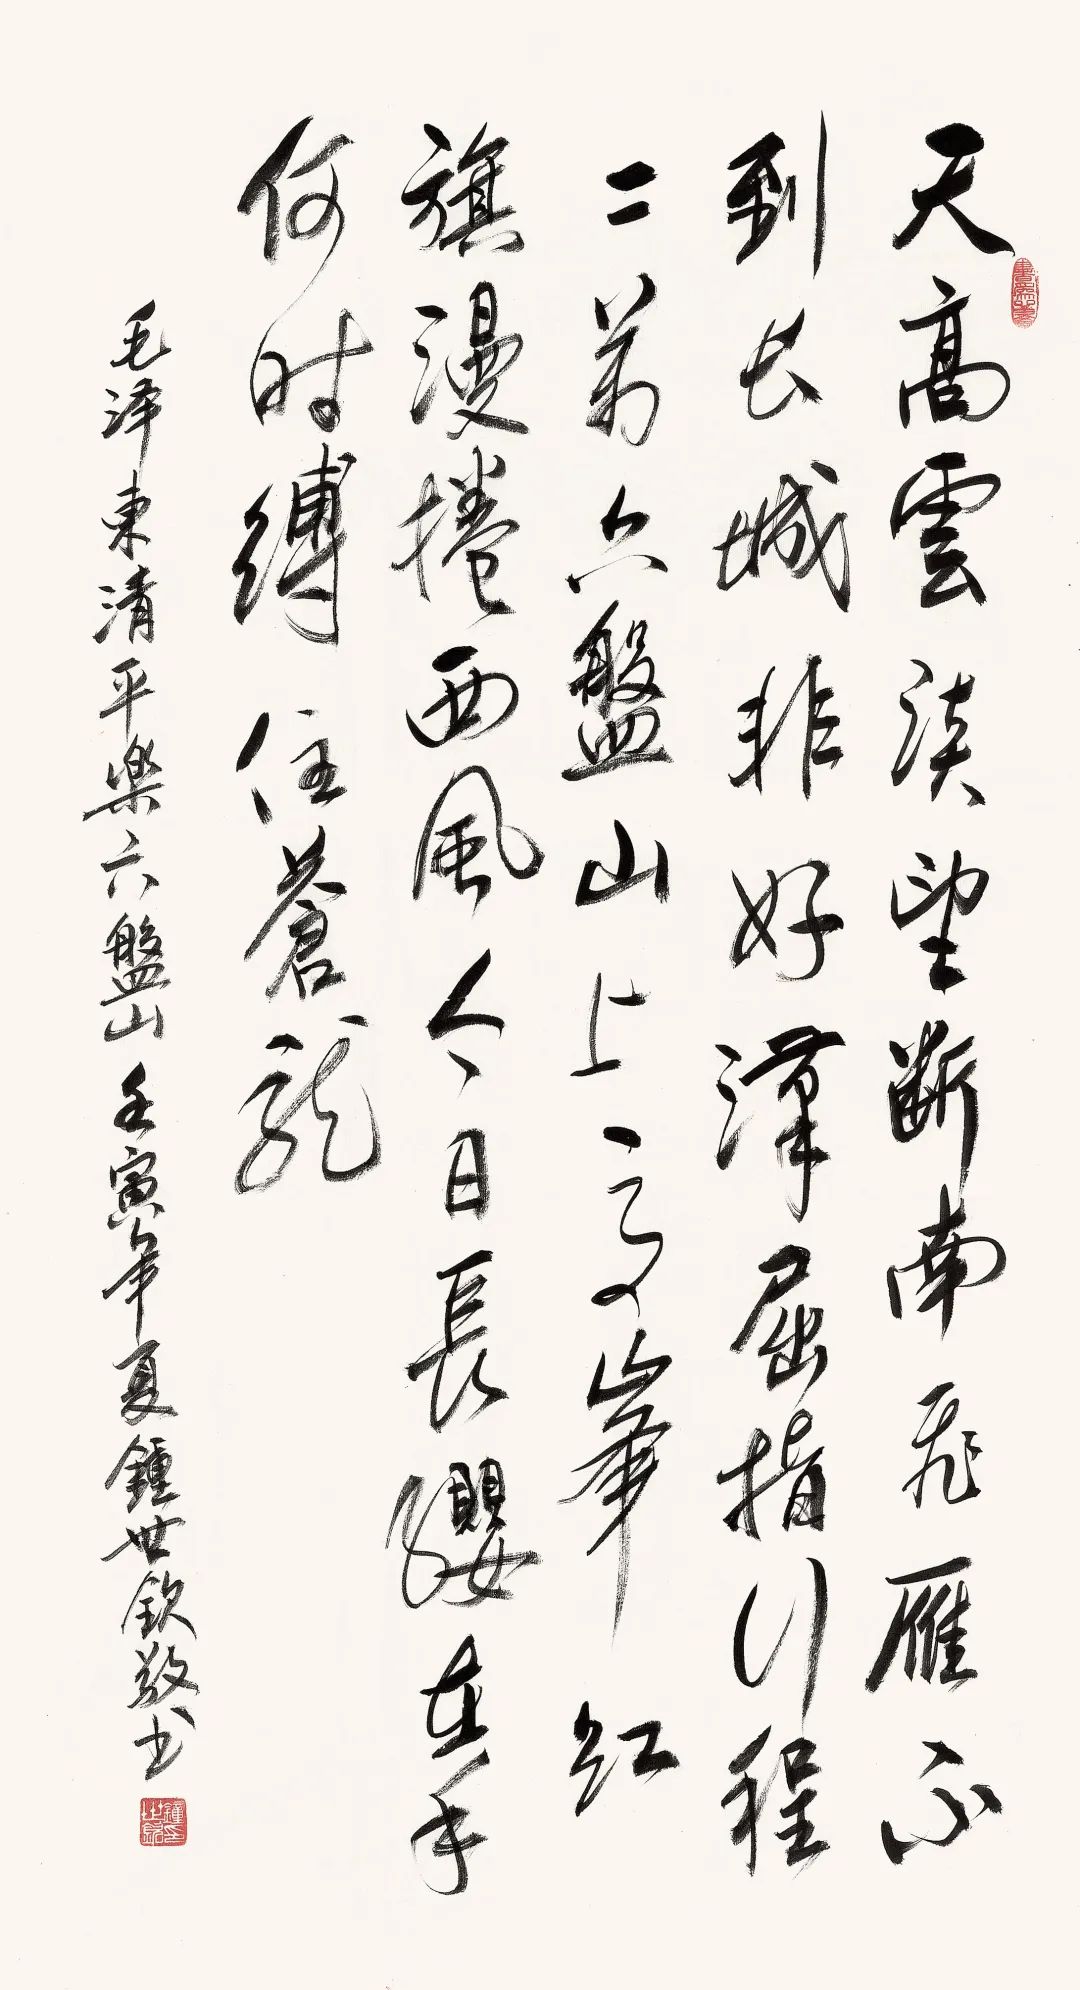 天高雲淡望斷南飛雁不
到长城非好漢屈指行程
二萬六盤山上高峯紅
旗漫捲西風今日長纓在手
何时縛住蒼龍
毛泽東清平楽六盤山壬寅年夏鍾世欽敬书